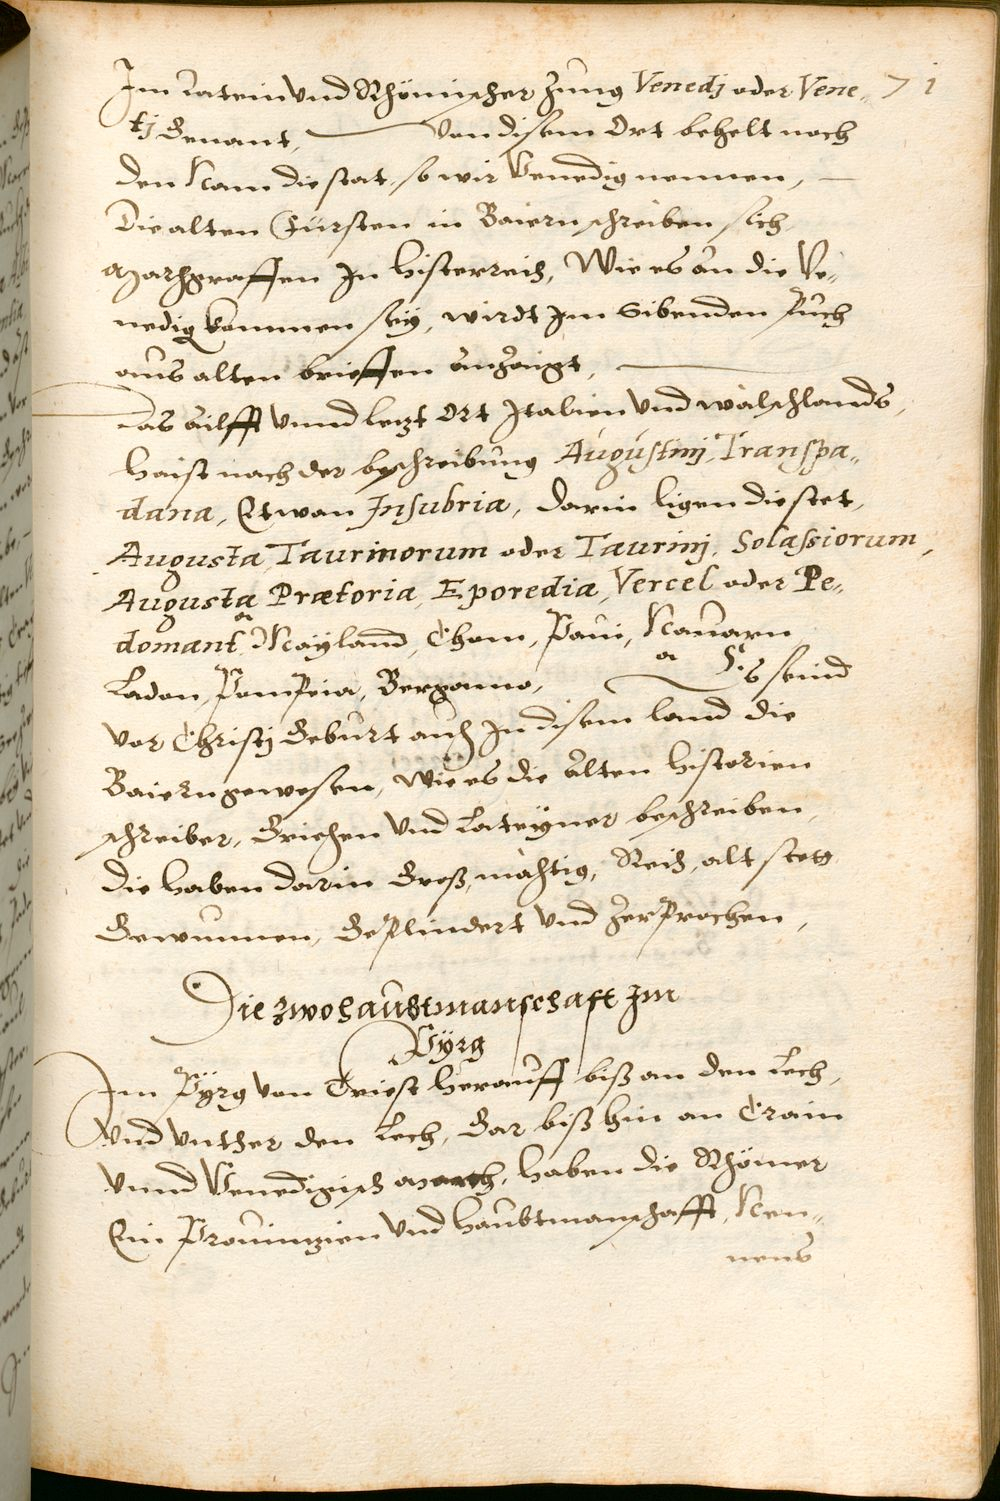 Im Latein vnd Rhömischer Zung Venedj oder Vene„ 71
tj Genant, Von disem Ort behelt noch
den Nam die stat, so wir Venedig nennen,
Die alten Fürsten in Baiern schreiben sich
Marhgraffen In Histerreich, Wie es an die Ve„
nedig kommen sey, wirdt Im Sibenden Puch
aus alten brieffen anzaigt,
Das ailfft vnnd letzt Ort Italien vnd wälschlands,
haist nach der beschreibung Augustinj, Transpa„
dana, Etwan Insubria, darin ligen die stet,
Augusta, Taurinorum oder Taurinj, Solassiorum,
Augusta Prætoria, Eporedia, Vercel oder Pe„
domant, Mayland, Chom, Paui, Nauarn
Ladon, Pompeia, Bergamo, Es seind
vor Christj Geburt auch In disem land die
Baiern gewesen, Wie es die alten historien
schreiber, Griechen vnd Lateyner beschreiben,
die haben darin Groß, mächtig, Reich, alt stett
Gewunnen, Geplindert vnd Zerprochen,
Die zwo haubtmanschaft Im
Pyrg
Im Pyrg von Triest herauff biß an den Lech,
Vnd vnther den Lech, Gar biß hin an Crain
Vnnd Venedigisch March, haben die Rhömer
Ein Prouintzien vnd haubtmanschafft, Nen„
nens